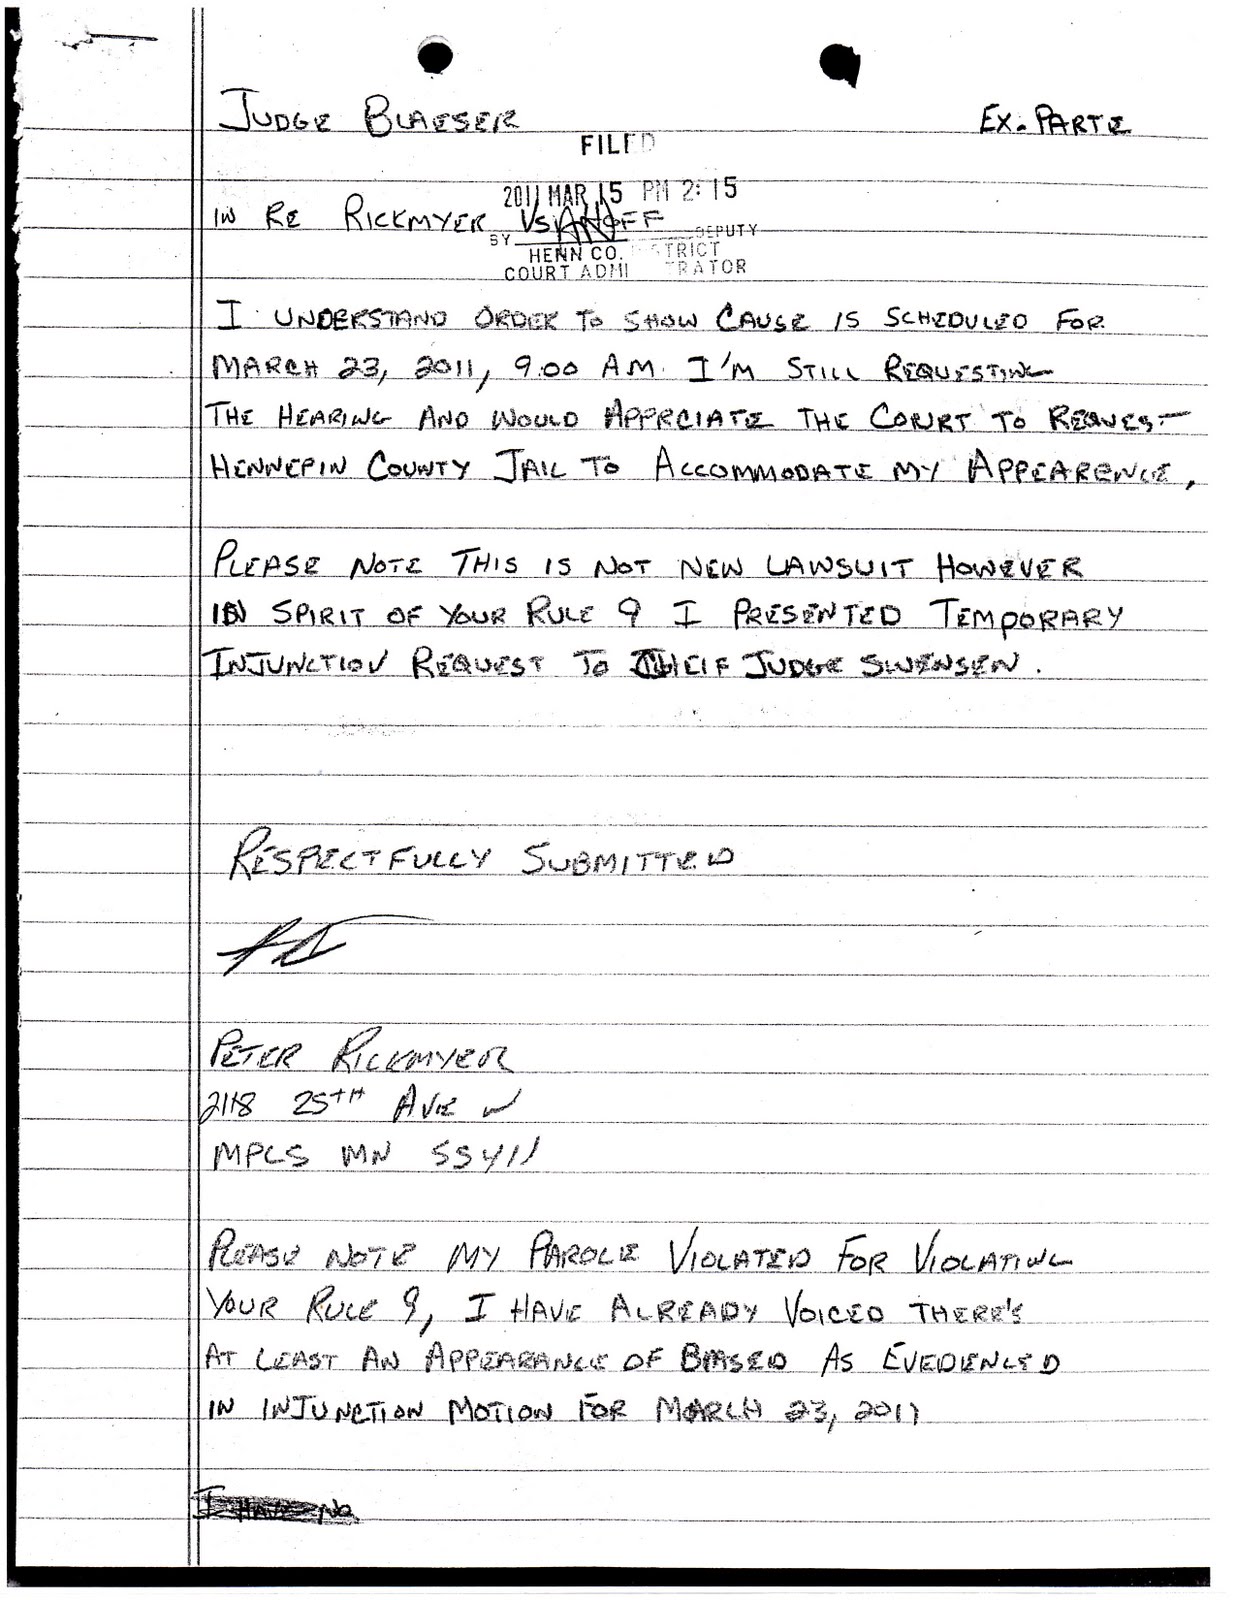 JUDGE BLAESER EX. PARTE
FILED
2011 MAR 15 PM 2:15
IN RE RICKMYER VS HOFF
BY DEPUTY
HENN CO. DISTRICT
COURT ADMINISTRATOR
I UNDERSTAND ORDER TO SHOW CAUSE IS SCHEDULED FOR
MARCH 23, 2011, 9:00 A.M. I'M STILL REQUESTING
THE HEARING AND WOULD APPRCIATE THE COURT TO REQUEST
HENNEPIN COUNTY JAIL TO ACCOMMODATE MY APPEARENCE,
PLEASE NOTE THIS IS NOT NEW LAWSUIT HOWEVER
IN SPIRIT OF YOUR RULE 9 I PRESENTED TEMPORARY
INJUNCTION REQUEST TO CHEIF JUDGE SWENSEN.
RESPECTFULLY SUBMITTED
PETER RICKMYER
2118 25TH AVE N
MPLS MN 55411
PLEASE NOTE MY PAROLE VIOLATED FOR VIOLATING
YOUR RULE 9, I HAVE ALREADY VOICED THERE'S
AT LEAST AN APPEARANCE OF BIASED AS EVEDIENCED
IN INJUNCTION MOTION FOR MARCH 23, 2011
I HAVE NO